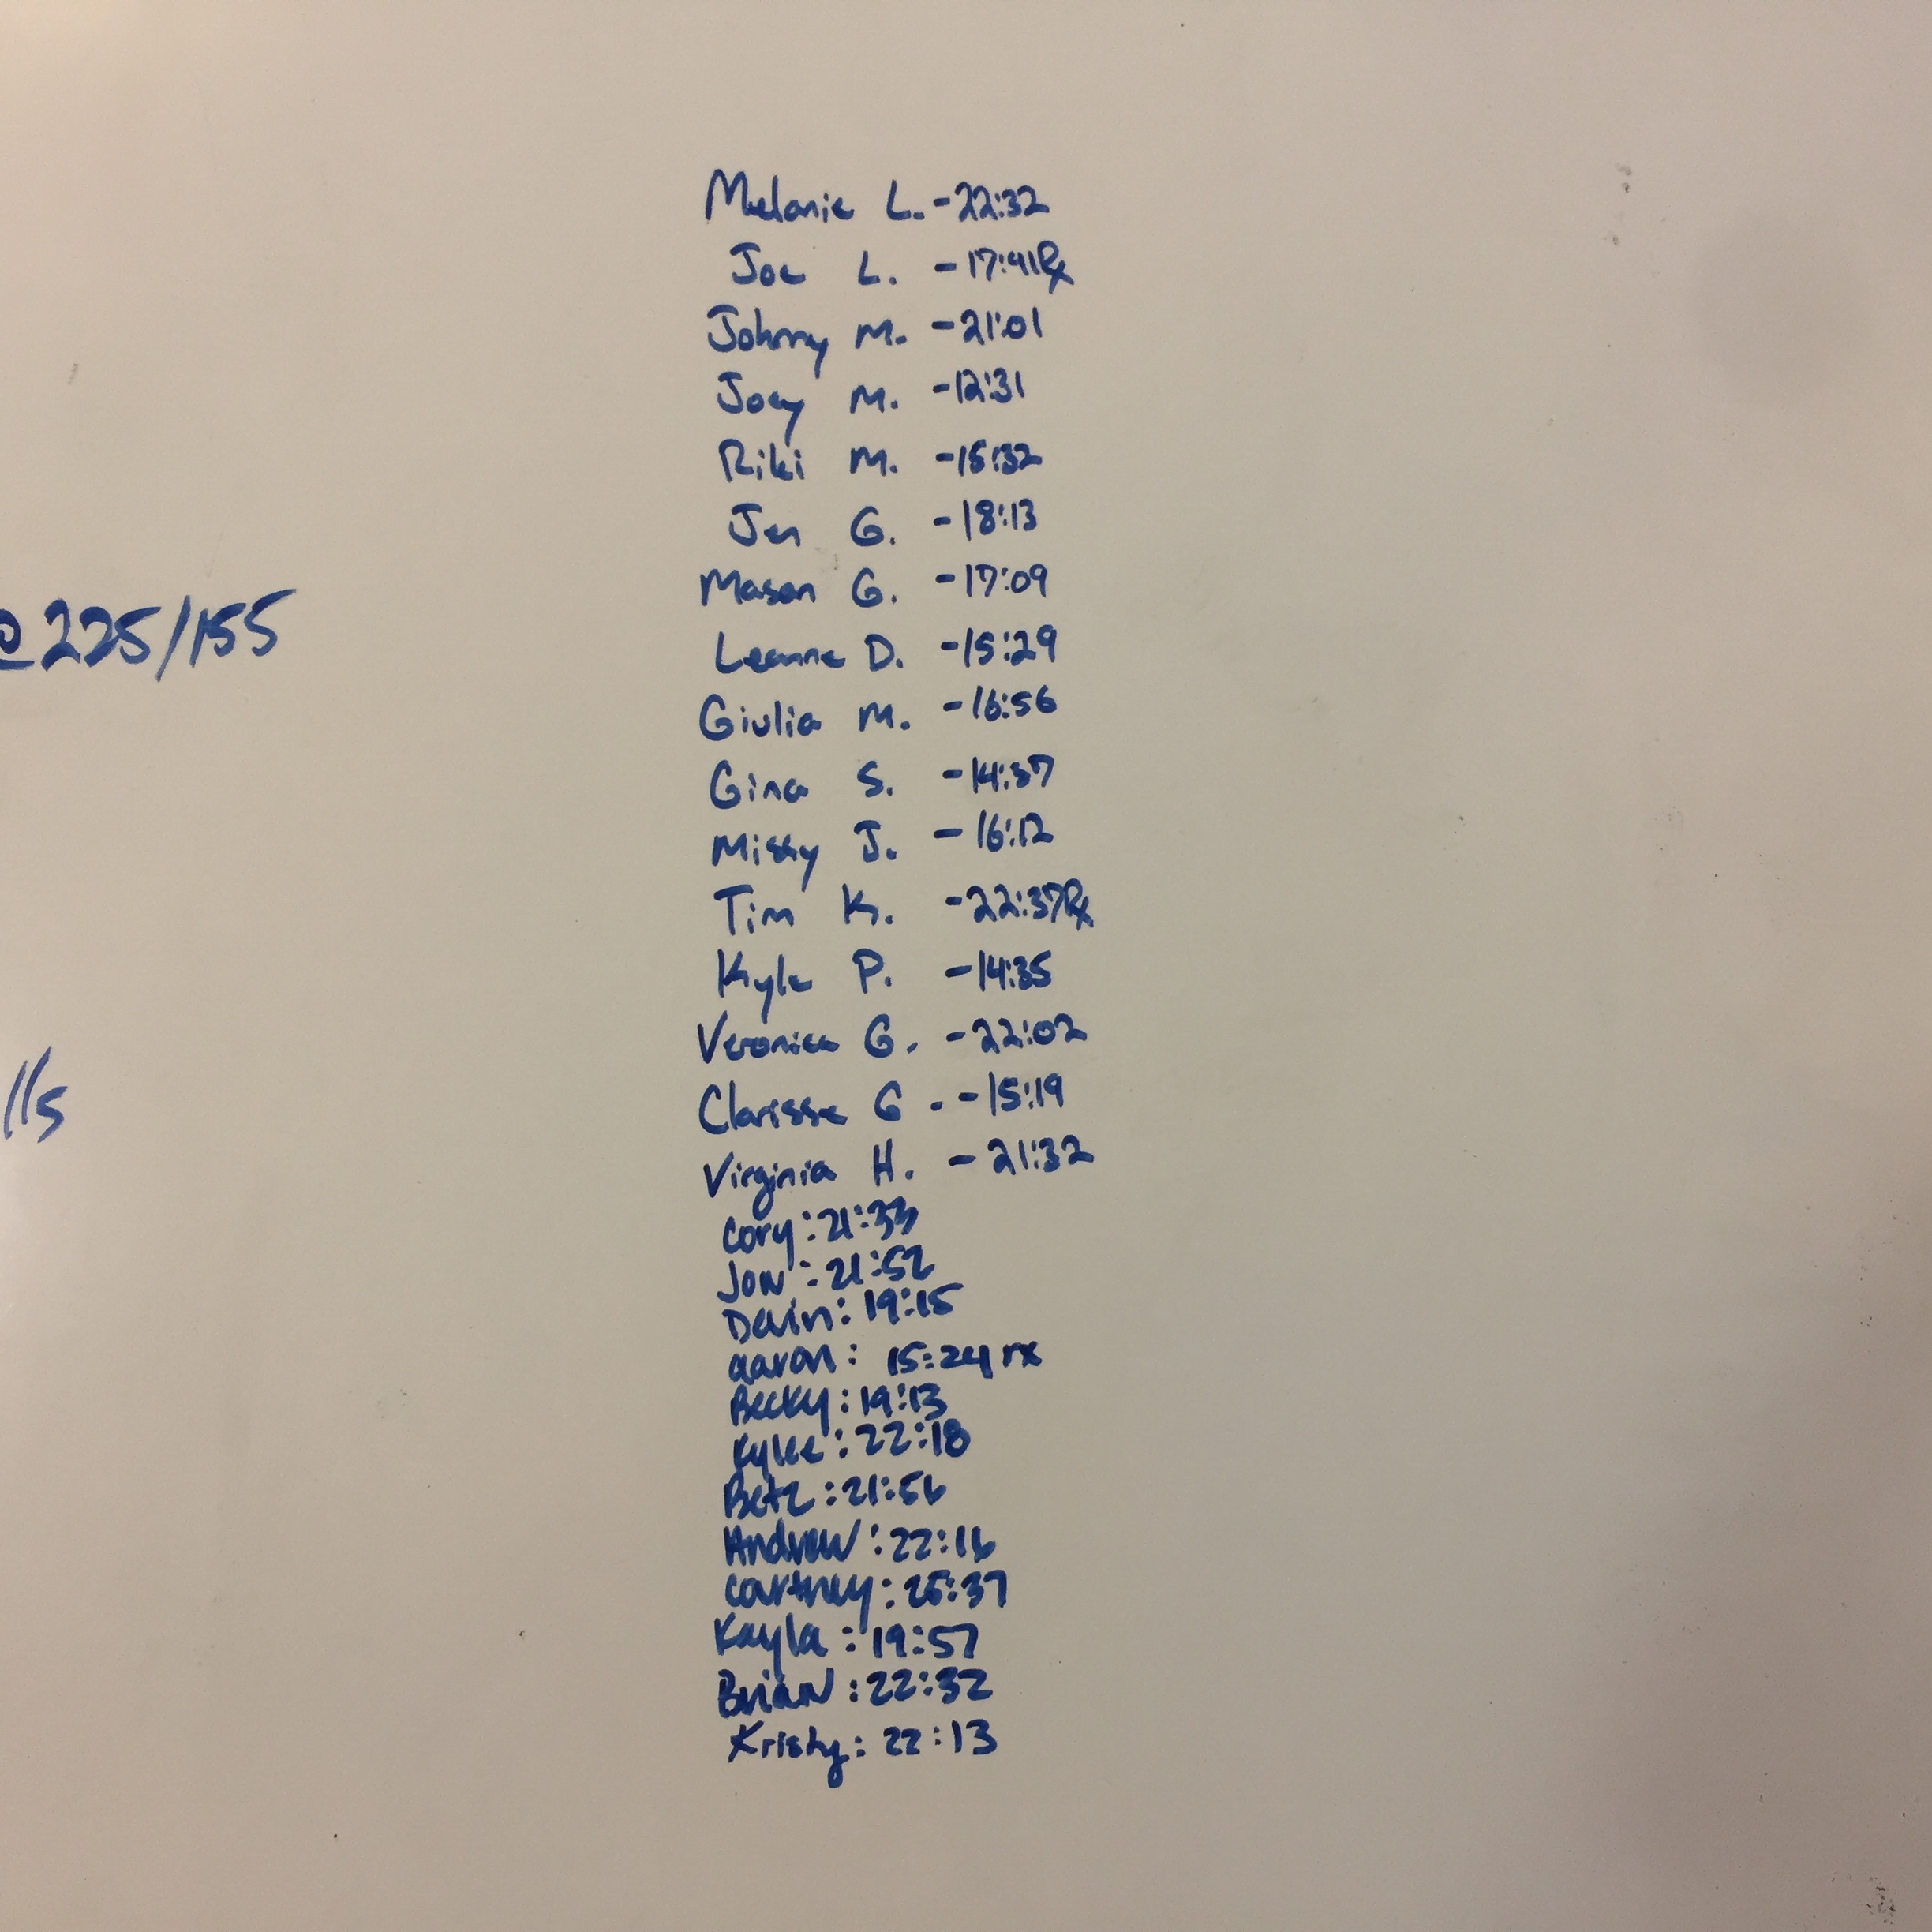 @ 225/155
115
Melanie L. - 22:32
Joe L. - 17:41 Rx
Johnny M. - 21:01
Joey M. - 12:31
Riki M. - 15:32
Jen G. - 18:13
Mason G. - 17:09
Leanne D. - 15:29
Giulia M. - 16:56
Gina S. - 14:37
Missy J. - 16:12
Tim K. - 22:37 Rx
Kyle P. - 14:35
Veronica G. - 22:02
Clarisse G. - 15:19
Virginia H. - 21:32
Cory: 21:33
Jon: 21:52
Devin: 19:15
aaron: 15:24 rx
Becky: 19:13
Kylee: 22:18
Betz: 21:56
Andrew: 22:16
courtney: 25:37
Kayla: 19:57
Brian: 22:32
Kristy: 22:13